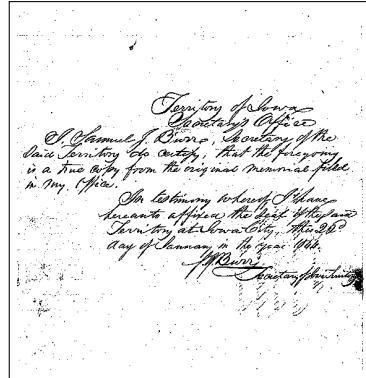 Territory of Iowa
Secretary's Office
I, Samuel J. Burr, Secretary of the
Said Territory do certify, that the foregoing
is a true copy from the original memorial filed
in my Office.
In testimony whereof I have
hereunto affixed the Seal of the said
Territory at Iowa City, this
day of January in the year
S J Burr
Secretary of